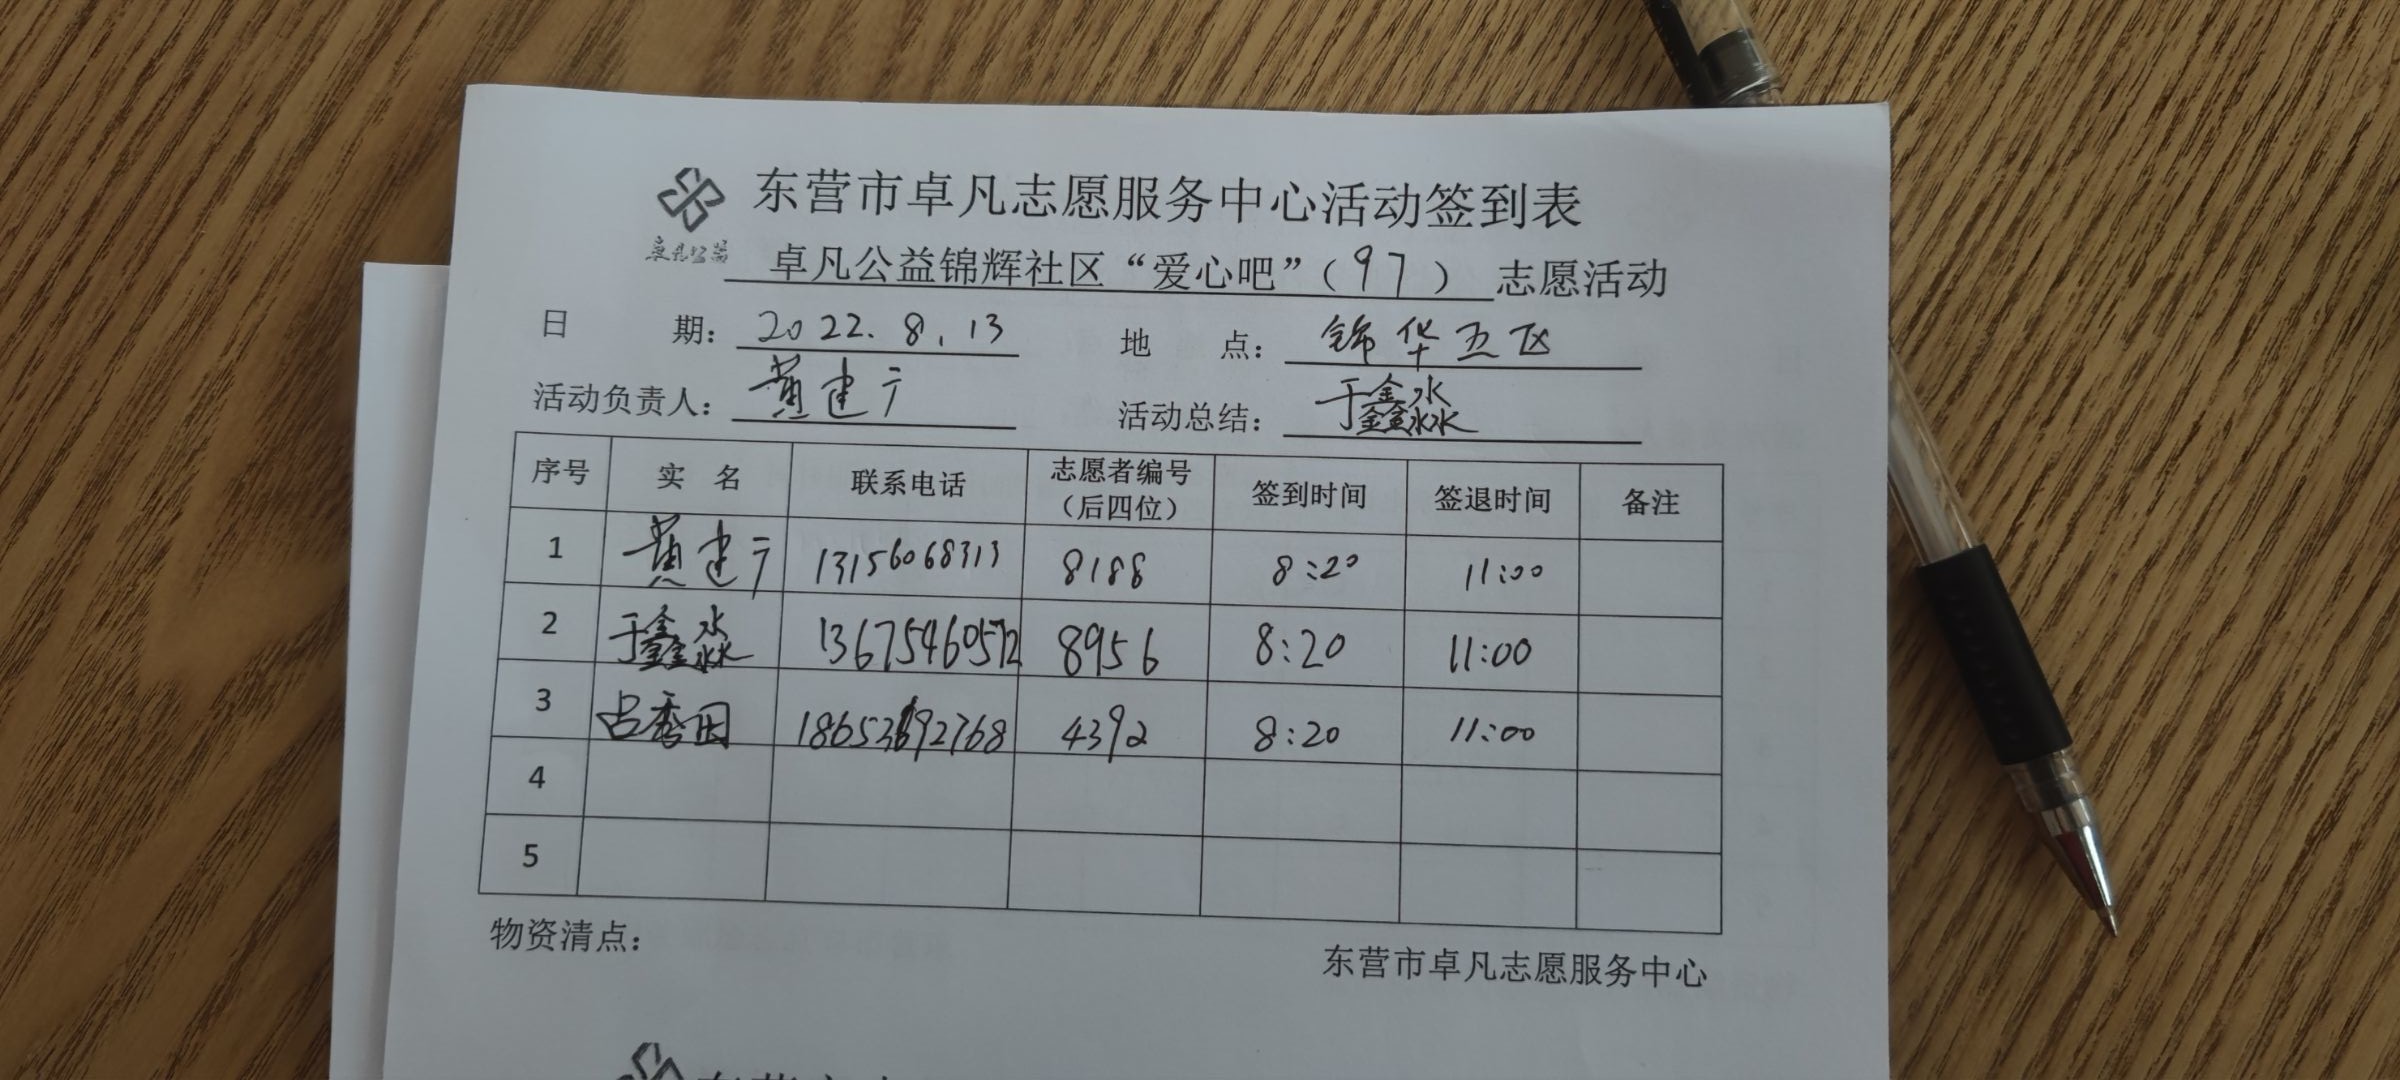 东营市卓凡志愿服务中心活动签到表
卓凡公益
卓凡公益锦辉社区“爱心吧”（97）志愿活动
日 期： 2022.8.13 地 点： 锦华五区
活动负责人： 黄建 活动总结： 于鑫淼
序号 实 名 联系电话 志愿者编号（后四位） 签到时间 签退时间 备注
1 黄建 13156068313 8188 8:20 11:00
2 于鑫淼 13675460572 8956 8:20 11:00
3 吕秀田 4392 8:20 11:00
4
5
物资清点：
东营市卓凡志愿服务中心